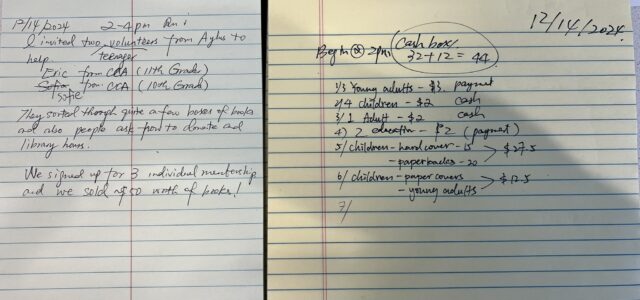 12/14/2024 2-4pm
I invited two volunteers from to
teenager
help
Eric from CCA (11th Grade)
from CCA (10th Grade)
Sofie
They sorted though quite a few boxes of books
and also people ask to donate and
library hours.
We signed up for 3 individual membership
and we sold ~$50 worth of books!
12/14/2024
Begin @ 2pm: Cash box:
32+12 = 44
1/ 3 Young adults - $3. paymet
2/ 4 children - $2 cash
3/ 1 Adult - $2 cash
4) 2 education - $2 (paymet)
5/ children - hard cover - 15
- paperbacks - 20 > $27.5
6/ children - paper covers
- young adults > $12.5
7/